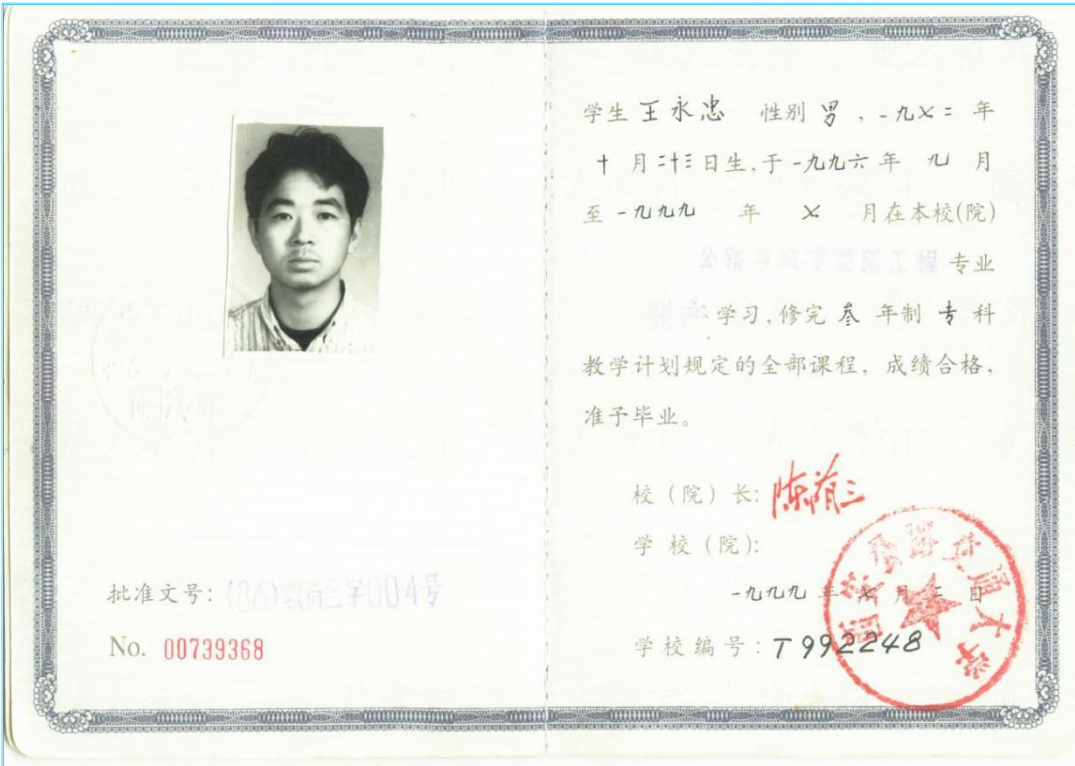 批准文号：(86)教高三字004号
No. 00739368
学生 王永忠 性别 男，一九七二年
十月二十三日生，于一九九六年 九月
至一九九九 年 七 月在本校(院)
公路与城市道路工程 专业
学习，修完 叁 年制 专 科
教学计划规定的全部课程，成绩合格，
准予毕业。
校（院）长：陈荫三
学 校（院）：
一九九九 年 七 月 二 日
学校编号：T992248
西安公路交通大学